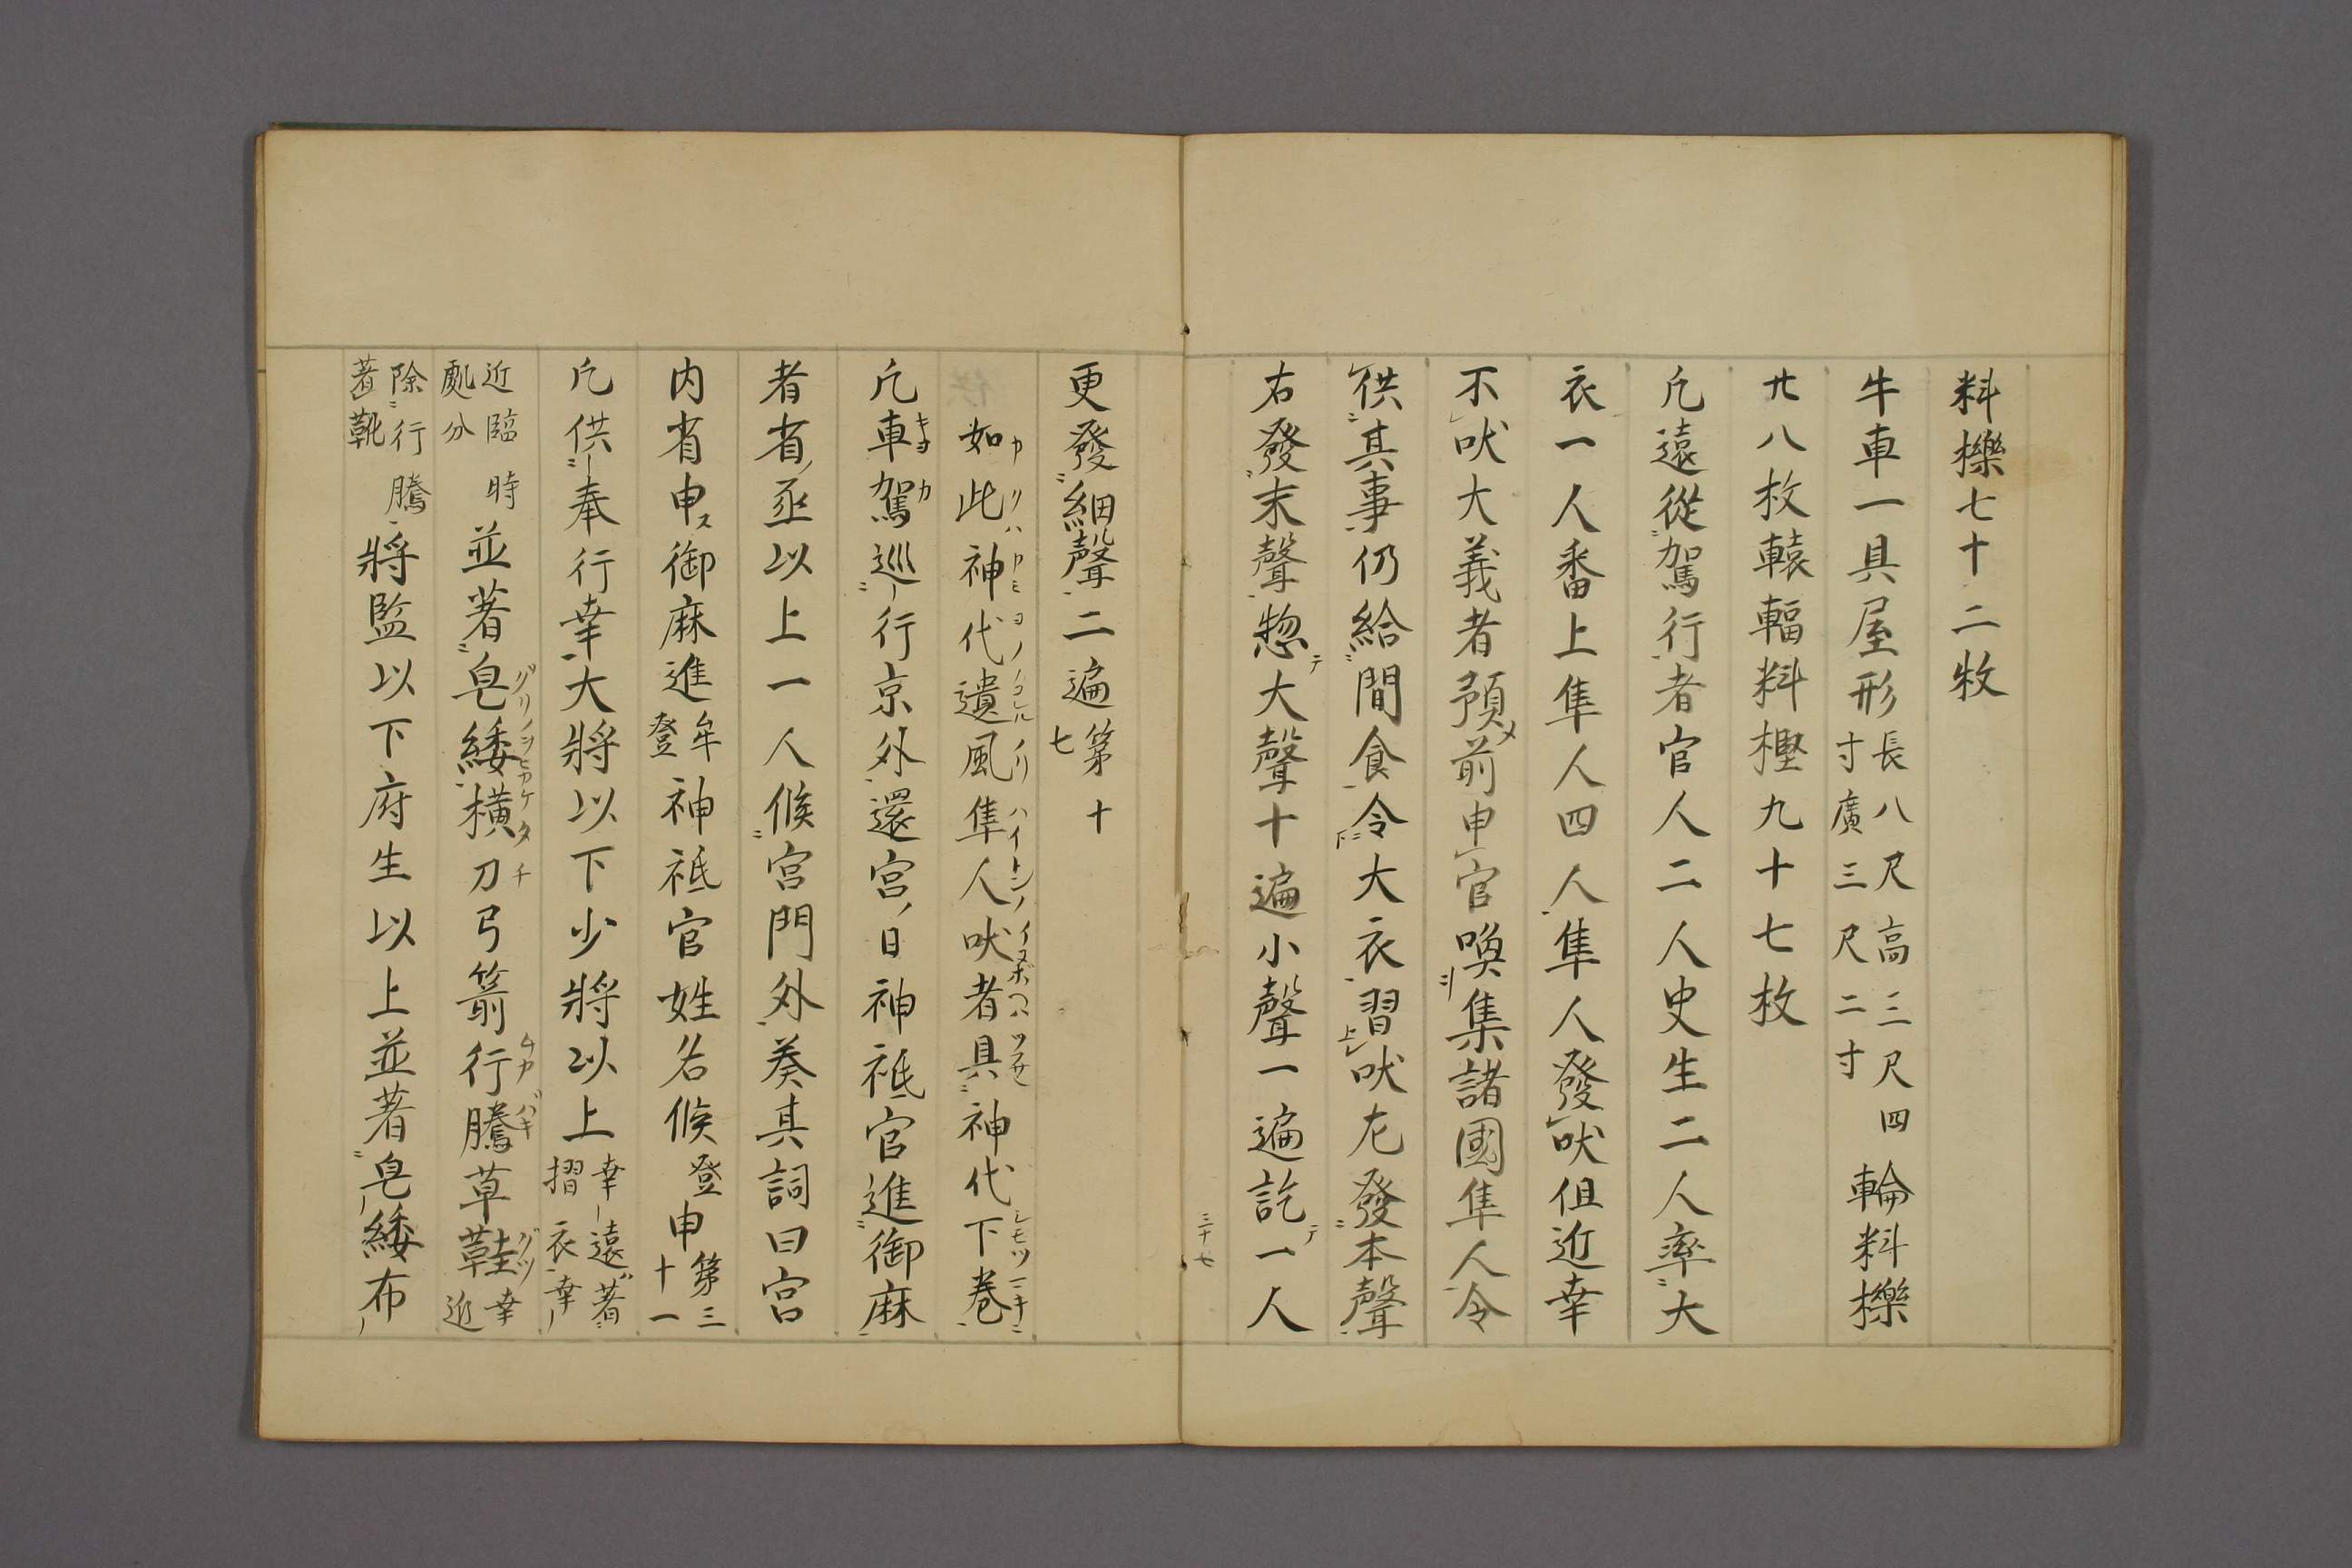 料擽七十二枚
牛車一具屋形長八尺高三尺四寸廣三尺二寸輪料擽
廿八枚轅輻料樫九十七枚
凡遠從駕行者官人二人史生二人率大
衣一人番上隼人四人隼人發吠但近幸
不吠大義者預メ前申官喚集諸國隼人令
供其事仍給間食令大衣習吠左發本聲
右發末聲惣テ大聲十遍小聲一遍訖テ一人
三十七
更發細聲二遍第十七
如此神代遺風隼人吠者具神代下巻
凡車駕巡行京外還宮ノ日神祇官進御麻
者省ノ丞以上一人候宮門外奏其詞曰宮
内省申ス御麻進牟登神祇官姓名候登申第三十一
凡供奉行幸大將以下少將以上幸遠著摺衣幸
近臨時處分並著皂緌横刀弓箭行騰草鞋幸近
除行騰著靴將監以下府生以上並著皂緌布